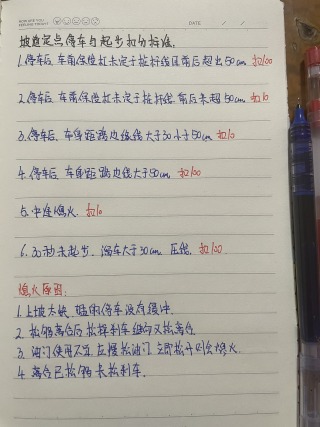 DATE / /
坡道定点停车与起步扣分标准.
1.停车后.车前保险杠未定于桩杆线且前后超出50cm.扣100
2.停车后.车前保险杠未定于桩杆线.前后未超50cm.扣10
3.停车后.车身距路边缘线大于30小于50cm.扣10
4.停车后.车身距路边线大于50cm.扣100
5.中途熄火.扣10
6.30秒未起步.溜车大于30cm.压线.扣100.
熄火原因:
1.上坡太快.猛的停车没有缓冲.
2.松够离合后松掉刹车继续又松离合.
3.油门使用不当.在慢松油门.立即松开则会熄火.
4.离合已松够未松刹车.